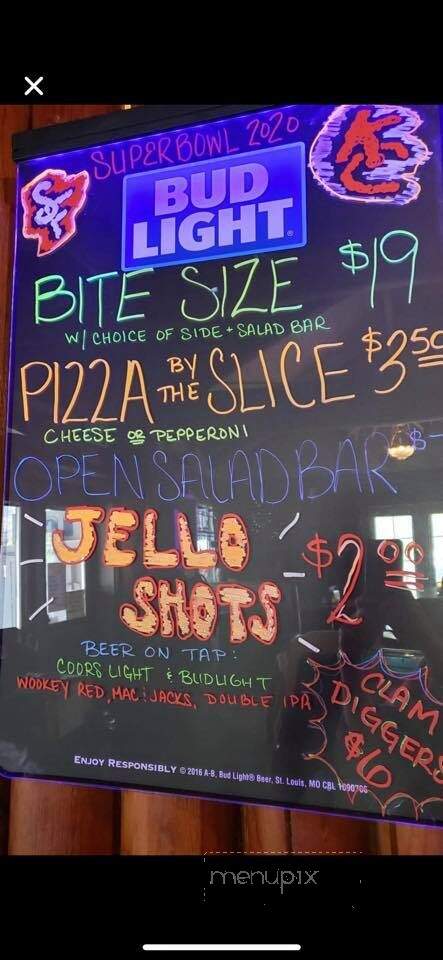 SUPERBOWL 2020
SF
KC
BUD
LIGHT
BITE SIZE $19
W/ CHOICE OF SIDE + SALAD BAR
PIZZA BY THE SLICE $3.50
CHEESE OR PEPPERONI
OPEN SALAD BAR $
JELLO
SHOTS
$2.00
BEER ON TAP:
COORS LIGHT & BUDLIGHT
WOOKEY RED, MAC & JACKS, DOUBLE IPA
CLAM
DIGGERS
$6
ENJOY RESPONSIBLY © 2016 A-B, Bud Light® Beer, St. Louis, MO
menupix